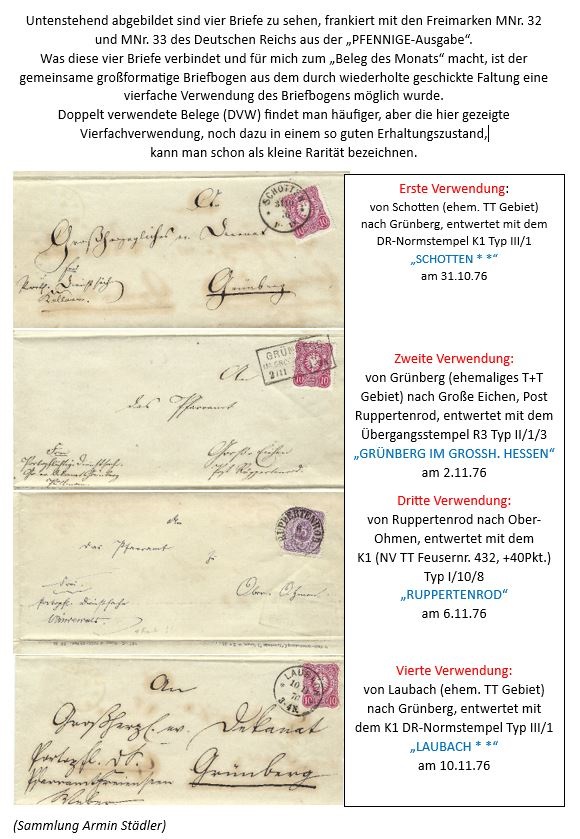 Untenstehend abgebildet sind vier Briefe zu sehen, frankiert mit den Freimarken MNr. 32
und MNr. 33 des Deutschen Reichs aus der „PFENNIGE-Ausgabe“.
Was diese vier Briefe verbindet und für mich zum „Beleg des Monats“ macht, ist der
gemeinsame großformatige Briefbogen aus dem durch wiederholte geschickte Faltung eine
vierfache Verwendung des Briefbogens möglich wurde.
Doppelt verwendete Belege (DVW) findet man häufiger, aber die hier gezeigte
Vierfachverwendung, noch dazu in einem so guten Erhaltungszustand,
kann man schon als kleine Rarität bezeichnen.
An
SCHOTTEN
31 10
76
10
Grünberg
Erste Verwendung:
von Schotten (ehem. TT Gebiet)
nach Grünberg, entwertet mit dem
DR-Normstempel K1 Typ III/1
„SCHOTTEN * *“
am 31.10.76
GRÜN
2/11
10 10
An
das Pfarramt
Große Eichen
Post Ruppertenrod.
Zweite Verwendung:
von Grünberg (ehemaliges T+T
Gebiet) nach Große Eichen, Post
Ruppertenrod, entwertet mit dem
Übergangsstempel R3 Typ II/1/3
„GRÜNBERG IM GROSSH. HESSEN“
am 2.11.76
RUPPERTENROD
An
das Pfarramt
zu
Ober-Ohmen
Dritte Verwendung:
von Ruppertenrod nach Ober-
Ohmen, entwertet mit dem
K1 (NV TT Feusernr. 432, +40Pkt.)
Typ I/10/8
„RUPPERTENROD“
am 6.11.76
LAUBACH
10 11
76
10
An
Großherzl. ev. Dekanat
Grünberg
Weber
Vierte Verwendung:
von Laubach (ehem. TT Gebiet)
nach Grünberg, entwertet mit
dem K1 DR-Normstempel Typ III/1
„LAUBACH * *“
am 10.11.76
(Sammlung Armin Städler)